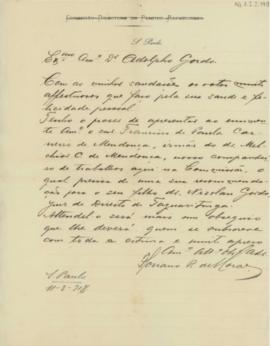 Commissão Directora do Partido Republicano
S. Paulo
Ex.mo Am.o Dr. Adolpho Gordo.
Com as minhas saudações os votos muito
affectuosos que faço pela sua saude e fe-
licidade pessoal.
Tenho o prazer de apresentar ao eminen-
te Am.o o snr. Francisco de Paula Car-
neiro de Mendonça, irmão do dr. Mel-
chios C. de Mendonça, nosso companhei-
ro de trabalhos aqui na Commissão, o
qual precisa de uma sua recommenda-
ção para o seu filho dr. Nicolau Gordo,
Juiz de Direito de Taquaritinga.
Attendel-o será mais um obsequio
que lhe deverá quem se subscreve
com toda a estima e muito apreço
Am.o Att.o Obr.
de Moraes
S. Paulo